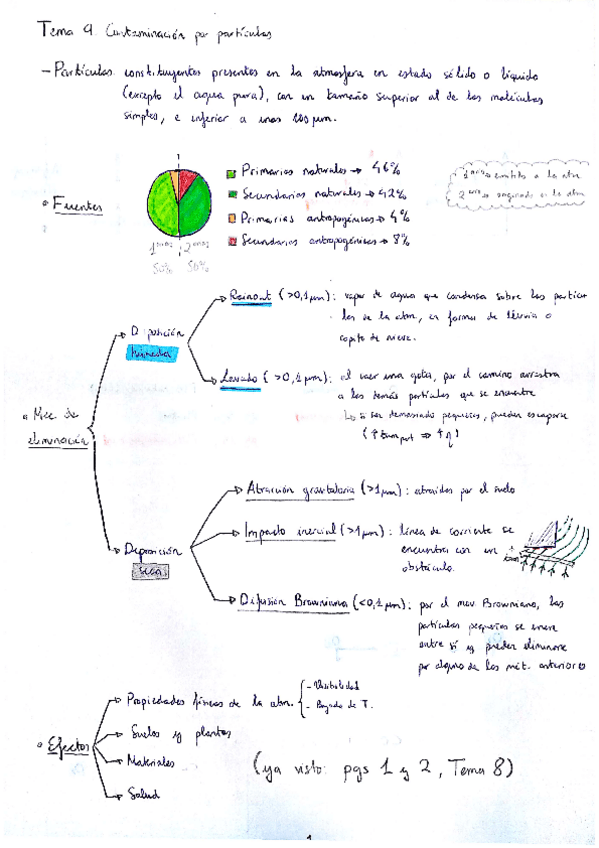 Tema 9 Contaminación por partículas
- Partículas constituyentes presentes en la atmósfera en estado sólido o líquido
(excepto el agua pura), con un tamaño superior al de las moléculas
simples, e inferior a unas 100 μm.
• Fuentes
Primarias naturales → 46%
Secundarias naturales → 42%
Primarias antropogénicas → 4%
Secundarias antropogénicas → 8%
1 arias → emitidas a la atm
2 arias → originadas en la atm
1 arias 2 arias
50% 50%
• Mec de
eliminación
Deposición
húmeda
Rainout (>0,1 μm): vapor de agua que condensa sobre las partícu
las de la atm, en forma de lluvia o
copito de nieve.
Lavado (>0,1 μm): al caer una gota, por el camino arrastra
a las demás partículas que se encuentre
↳ si son demasiado pequeñas, pueden escaparse
(↑ tam part ⇒ ↑ η)
Deposición
seca
Atracción gravitatoria (>1 μm): atraídas por el suelo
Impacto inercial (>1 μm): línea de corriente se
encuentra con un
obstáculo.
Difusión Browniana (<0,1 μm): por el mov. Browniano, las
partículas pequeñas se unen
entre sí y pueden eliminarse
por alguno de los mét. anteriores
• Efectos
Propiedades físicas de la atm.
- Visibilidad
- Bajada de T.
Suelos y plantas
Materiales
Salud
(ya visto: pgs 1 y 2, Tema 8)
1